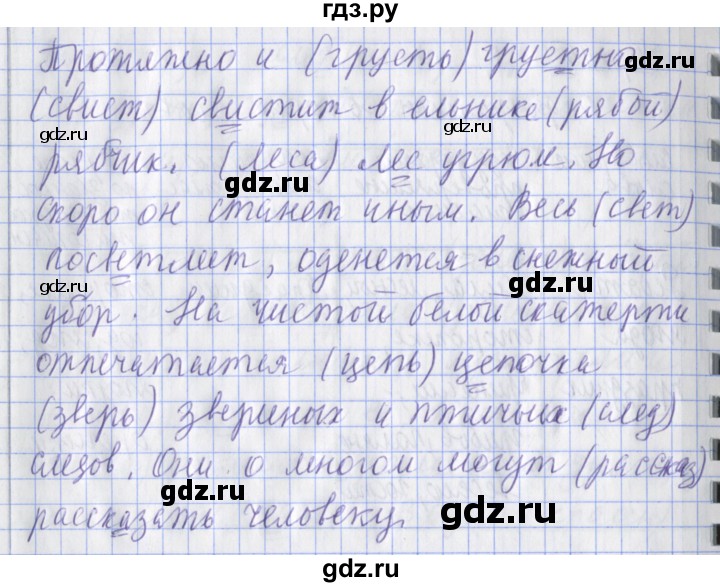 гдз.ру
Протяжно и (грусть) грустно
gdz.ru gdz.ru
(свист) свистит в ельнике (рябой)
gdz.ru
рябчик. (Леса) лес угрюм. Но
gdz.ru
скоро он станет иным. Весь (свет)
gdz.ru
посветлеет, оденется в снежный
gdz.ru gdz.ru
убор. На чистой белой скатерти
отпечатается (цепь) цепочка
gdz.ru
(зверь) звериных и птичьих (след)
следов. Они о многом могут (рассказ)
gdz.ru
рассказать человеку.
gdz.ru